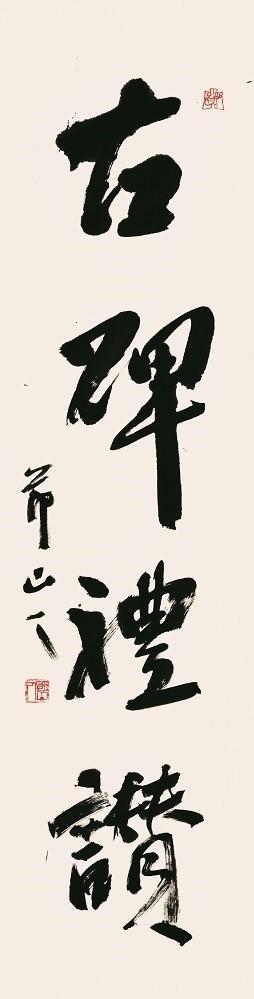 古碑禮讃
茆山人